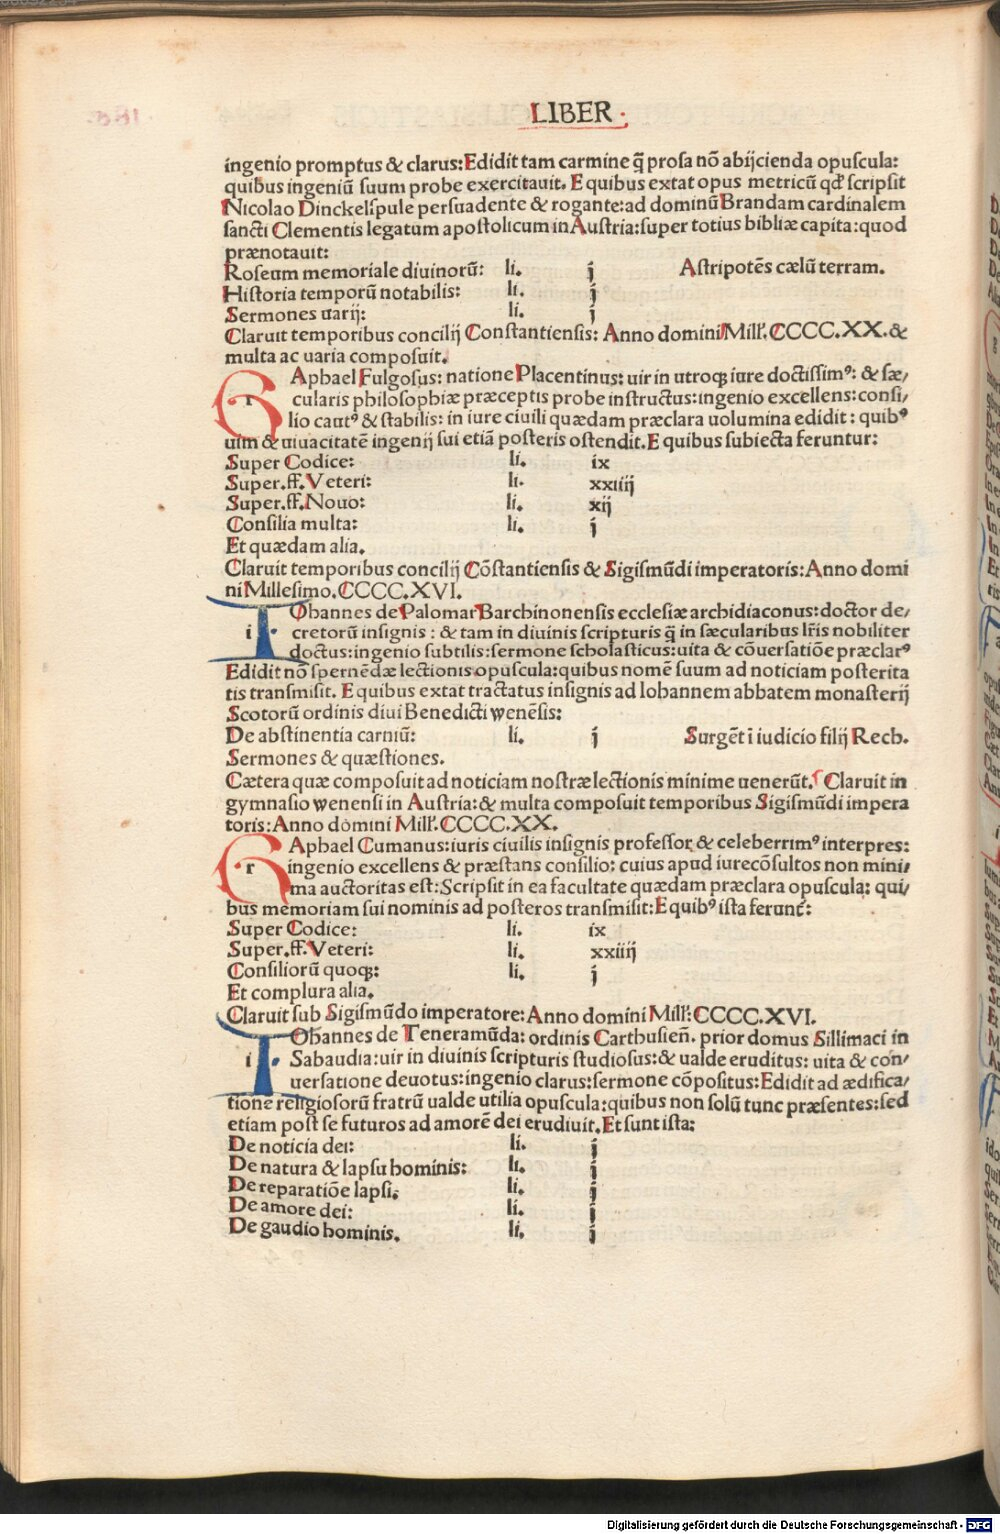 LIBER.
ingenio promptus & clarus: Edidit tam carmine q̃ prosa nõ abijcienda opuscula:
quibus ingeniũ suum probe exercitauit. E quibus extat opus metricũ qđ scripsit
Nicolao Dinckelspule persuadente & rogante: ad dominũ Brandam cardinalem
sancti Clementis legatum apostolicum in Austria: super totius bibliæ capita: quod
prænotauit:
Roseum memoriale diuinorũ: li. j Astripotẽs cælũ terram.
Historia temporũ notabilis: li. j
Sermones uarij: li. j
Claruit temporibus concilij Constantiensis: Anno domini Mill'. CCCC.XX. &
multa ac uaria composuit.
r Aphael Fulgosus: natione Placentinus: uir in utroq; iure doctissimꝰ: & sæ/
cularis philosophiæ præceptis probe instructus: ingenio excellens: consi/
lio cautꝰ & stabilis: in iure ciuili quædam præclara uolumina edidit: quibꝰ
uim & uiuacitatẽ ingenij sui etiã posteris ostendit. E quibus subiecta feruntur:
Super Codice: li. ix
Super.ff.Veteri: li. xxiiij
Super.ff.Nouo: li. xij
Consilia multa: li. j
Et quædam alia.
Claruit temporibus concilij Cõstantiensis & Sigismũdi imperatoris: Anno domi
ni Millesimo. CCCC.XVI.
i Ohannes de Palomar Barchinonensis ecclesiæ archidiaconus: doctor de/
cretorũ insignis: & tam in diuinis scripturis q̃ in sæcularibus lr̃is nobiliter
doctus: ingenio subtilis: sermone scholasticus: uita & cõuersatiõe præclarꝰ
Edidit nõ spernẽdæ lectionis opuscula: quibus nomẽ suum ad noticiam posterita
tis transmisit. E quibus extat tractatus insignis ad Iohannem abbatem monasterij
Scotorũ ordinis diui Benedicti wenẽsis:
De abstinentia carniũ: li. j Surgẽt ĩ iudicio filij Rech.
Sermones & quæstiones.
Cætera quæ composuit ad noticiam nostræ lectionis minime uenerũt. Claruit in
gymnasio wenensi in Austria: & multa composuit temporibus Sigismũdi impera
toris: Anno domini Mill'. CCCC.XX.
r Aphael Cumanus: iuris ciuilis insignis professor & celeberrimꝰ interpres:
ingenio excellens & præstans consilio: cuius apud iurecõsultos non mini/
ma auctoritas est: Scripsit in ea facultate quædam præclara opuscula: qui/
bus memoriam sui nominis ad posteros transmisit: E quibꝰ ista ferunt̃:
Super Codice: li. ix
Super.ff.Veteri: li. xxiiij
Consiliorũ quoq;: li. j
Et complura alia.
Claruit sub Sigismũdo imperatore: Anno domini Mill': CCCC.XVI.
i Ohannes de Teneramũda: ordinis Carthusieñ. prior domus Sillimaci in
Sabaudia: uir in diuinis scripturis studiosus: & ualde eruditus: uita & con/
uersatione deuotus: ingenio clarus: sermone cõpositus: Edidit ad ædifica/
tione religiosorũ fratrũ ualde utilia opuscula: quibus non solũ tunc præsentes: sed
etiam post se futuros ad amorẽ dei erudiuit. Et sunt ista:
De noticia dei: li. j
De natura & lapsu hominis: li. j
De reparatiõe lapsi. li. j
De amore dei: li. j
De gaudio hominis. li. j
Digitalisierung gefördert durch die Deutsche Forschungsgemeinschaft - DFG